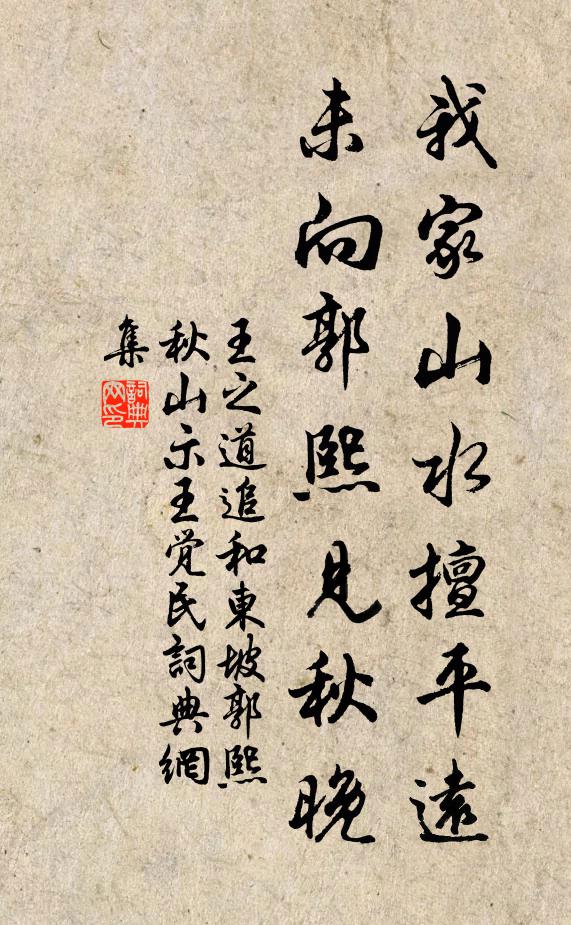 我家山水擅平遠
未向郭熙見秋晚
王之道追和東坡郭熙
秋山示王覚民詞典網
集
詞典
网印